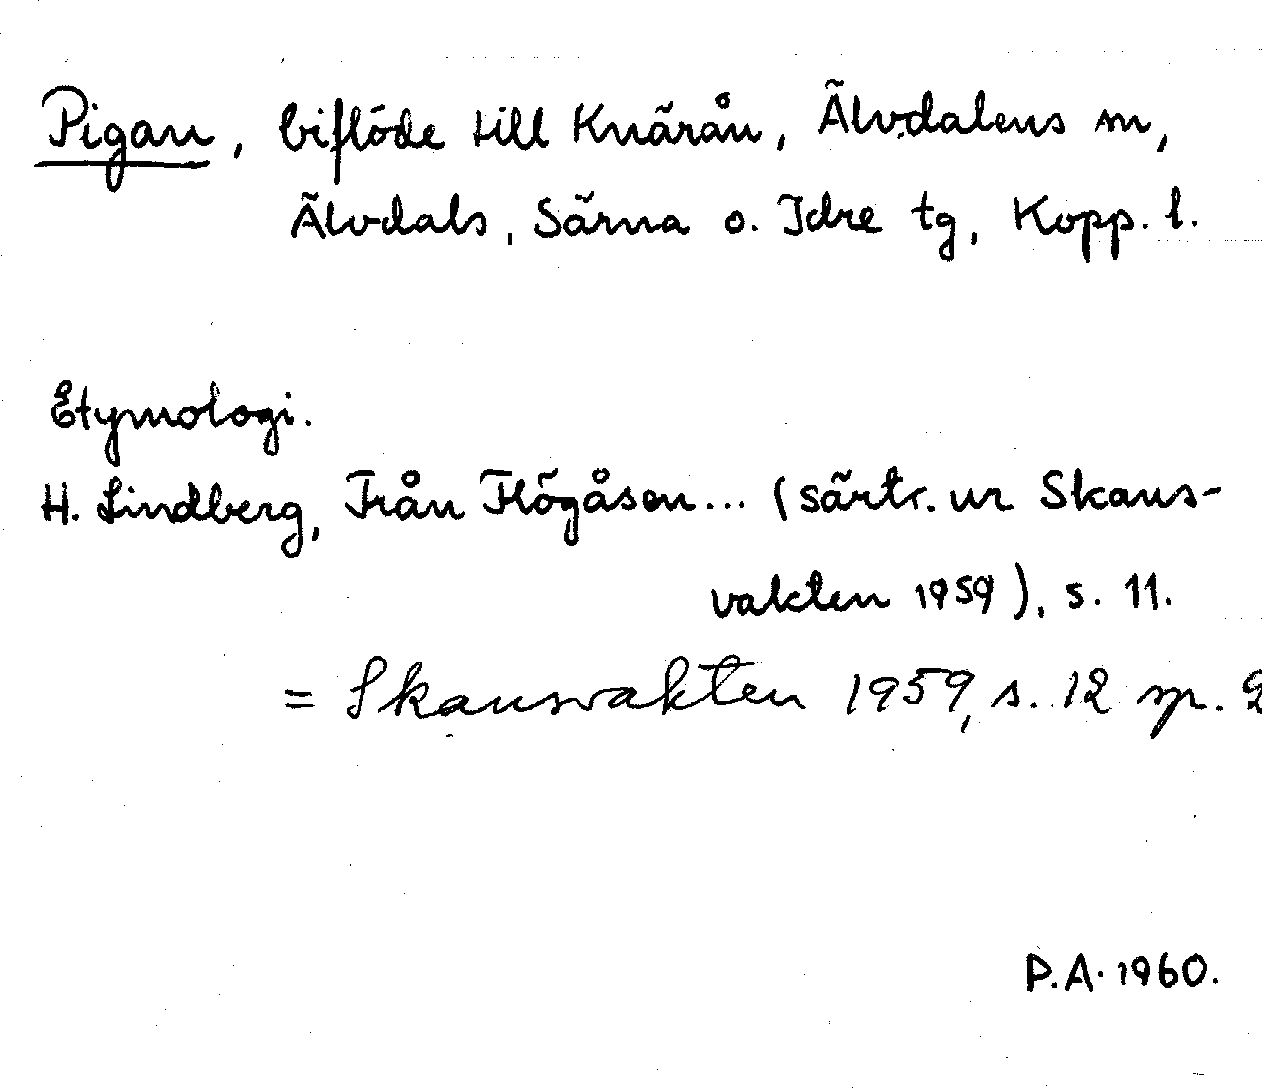 Pigan, biflöde till Knärån, Älvdalens m,
Älvdals, Särna o. Idre tg, Kopp. l.
Etymologi.
H. Lindberg, Från Flögåsen... (särtr. ur Skans-
vakten 1959), s. 11.
= Skansvakten 1959, s. 12 sp. 2
P.A. 1960.